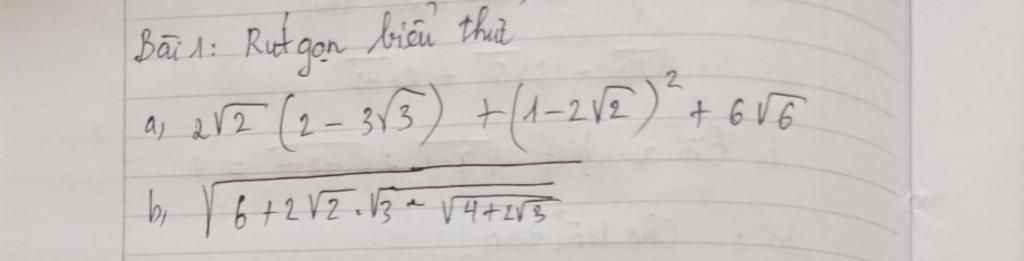 Bài 1: Rút gọn biểu thức
a, 2√2 (2 - 3√3) + (1 - 2√2)² + 6√6
b, √(6 + 2√2 . √(3 - √(4 + 2√3)))